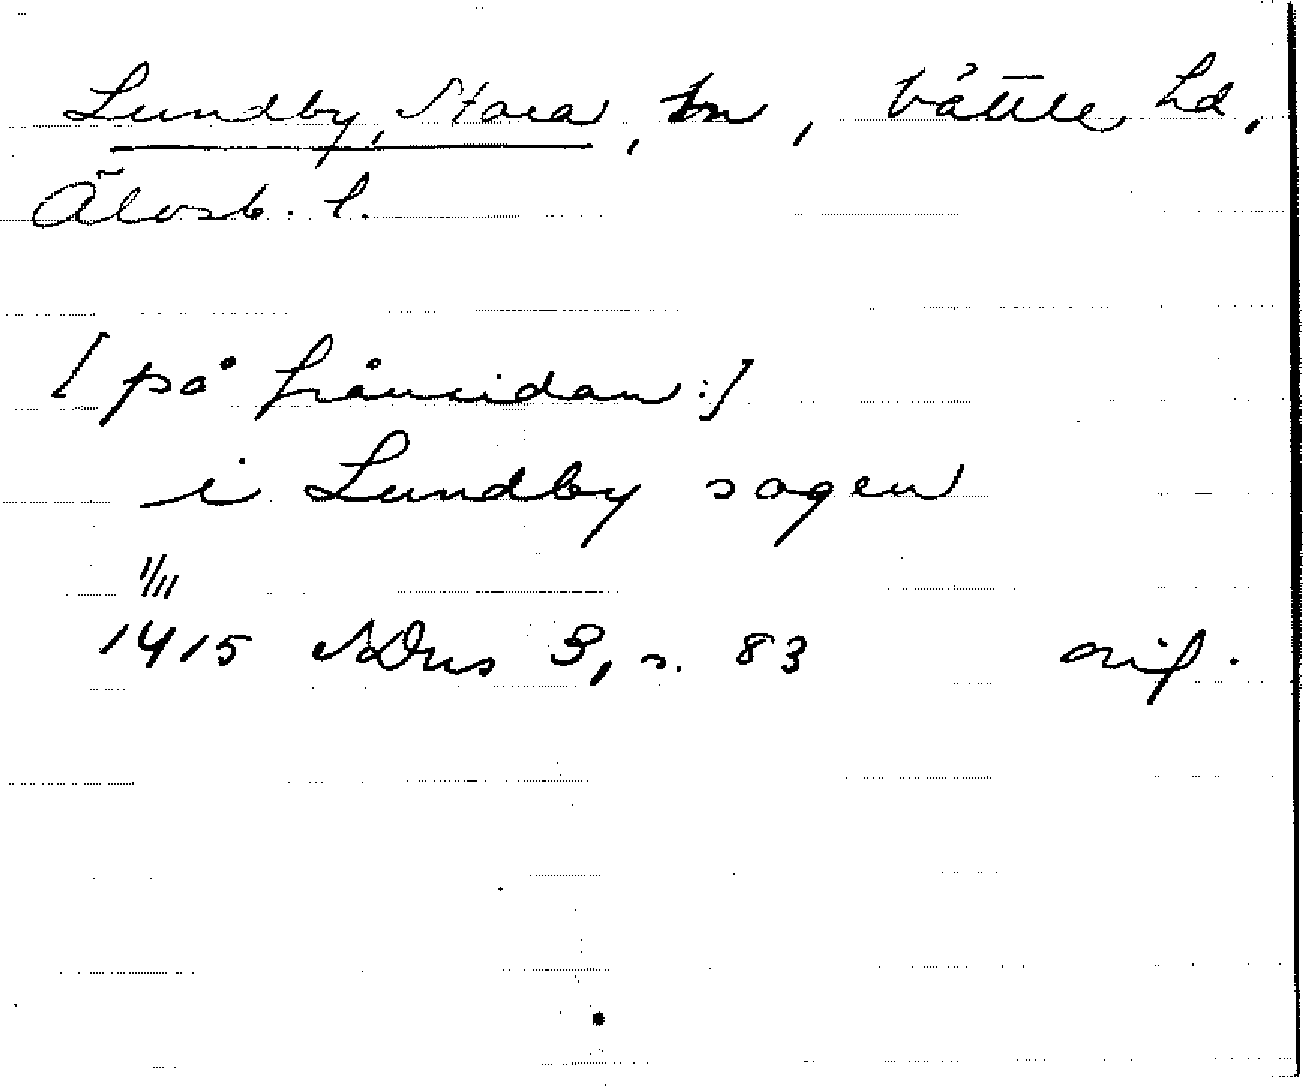 Lundby, Stora, sn, Vättle hd,
Älvsb. l.
[på frånsidan:]
i Lundby sogen
1/11
1415 SDns 3, s. 83 avif.